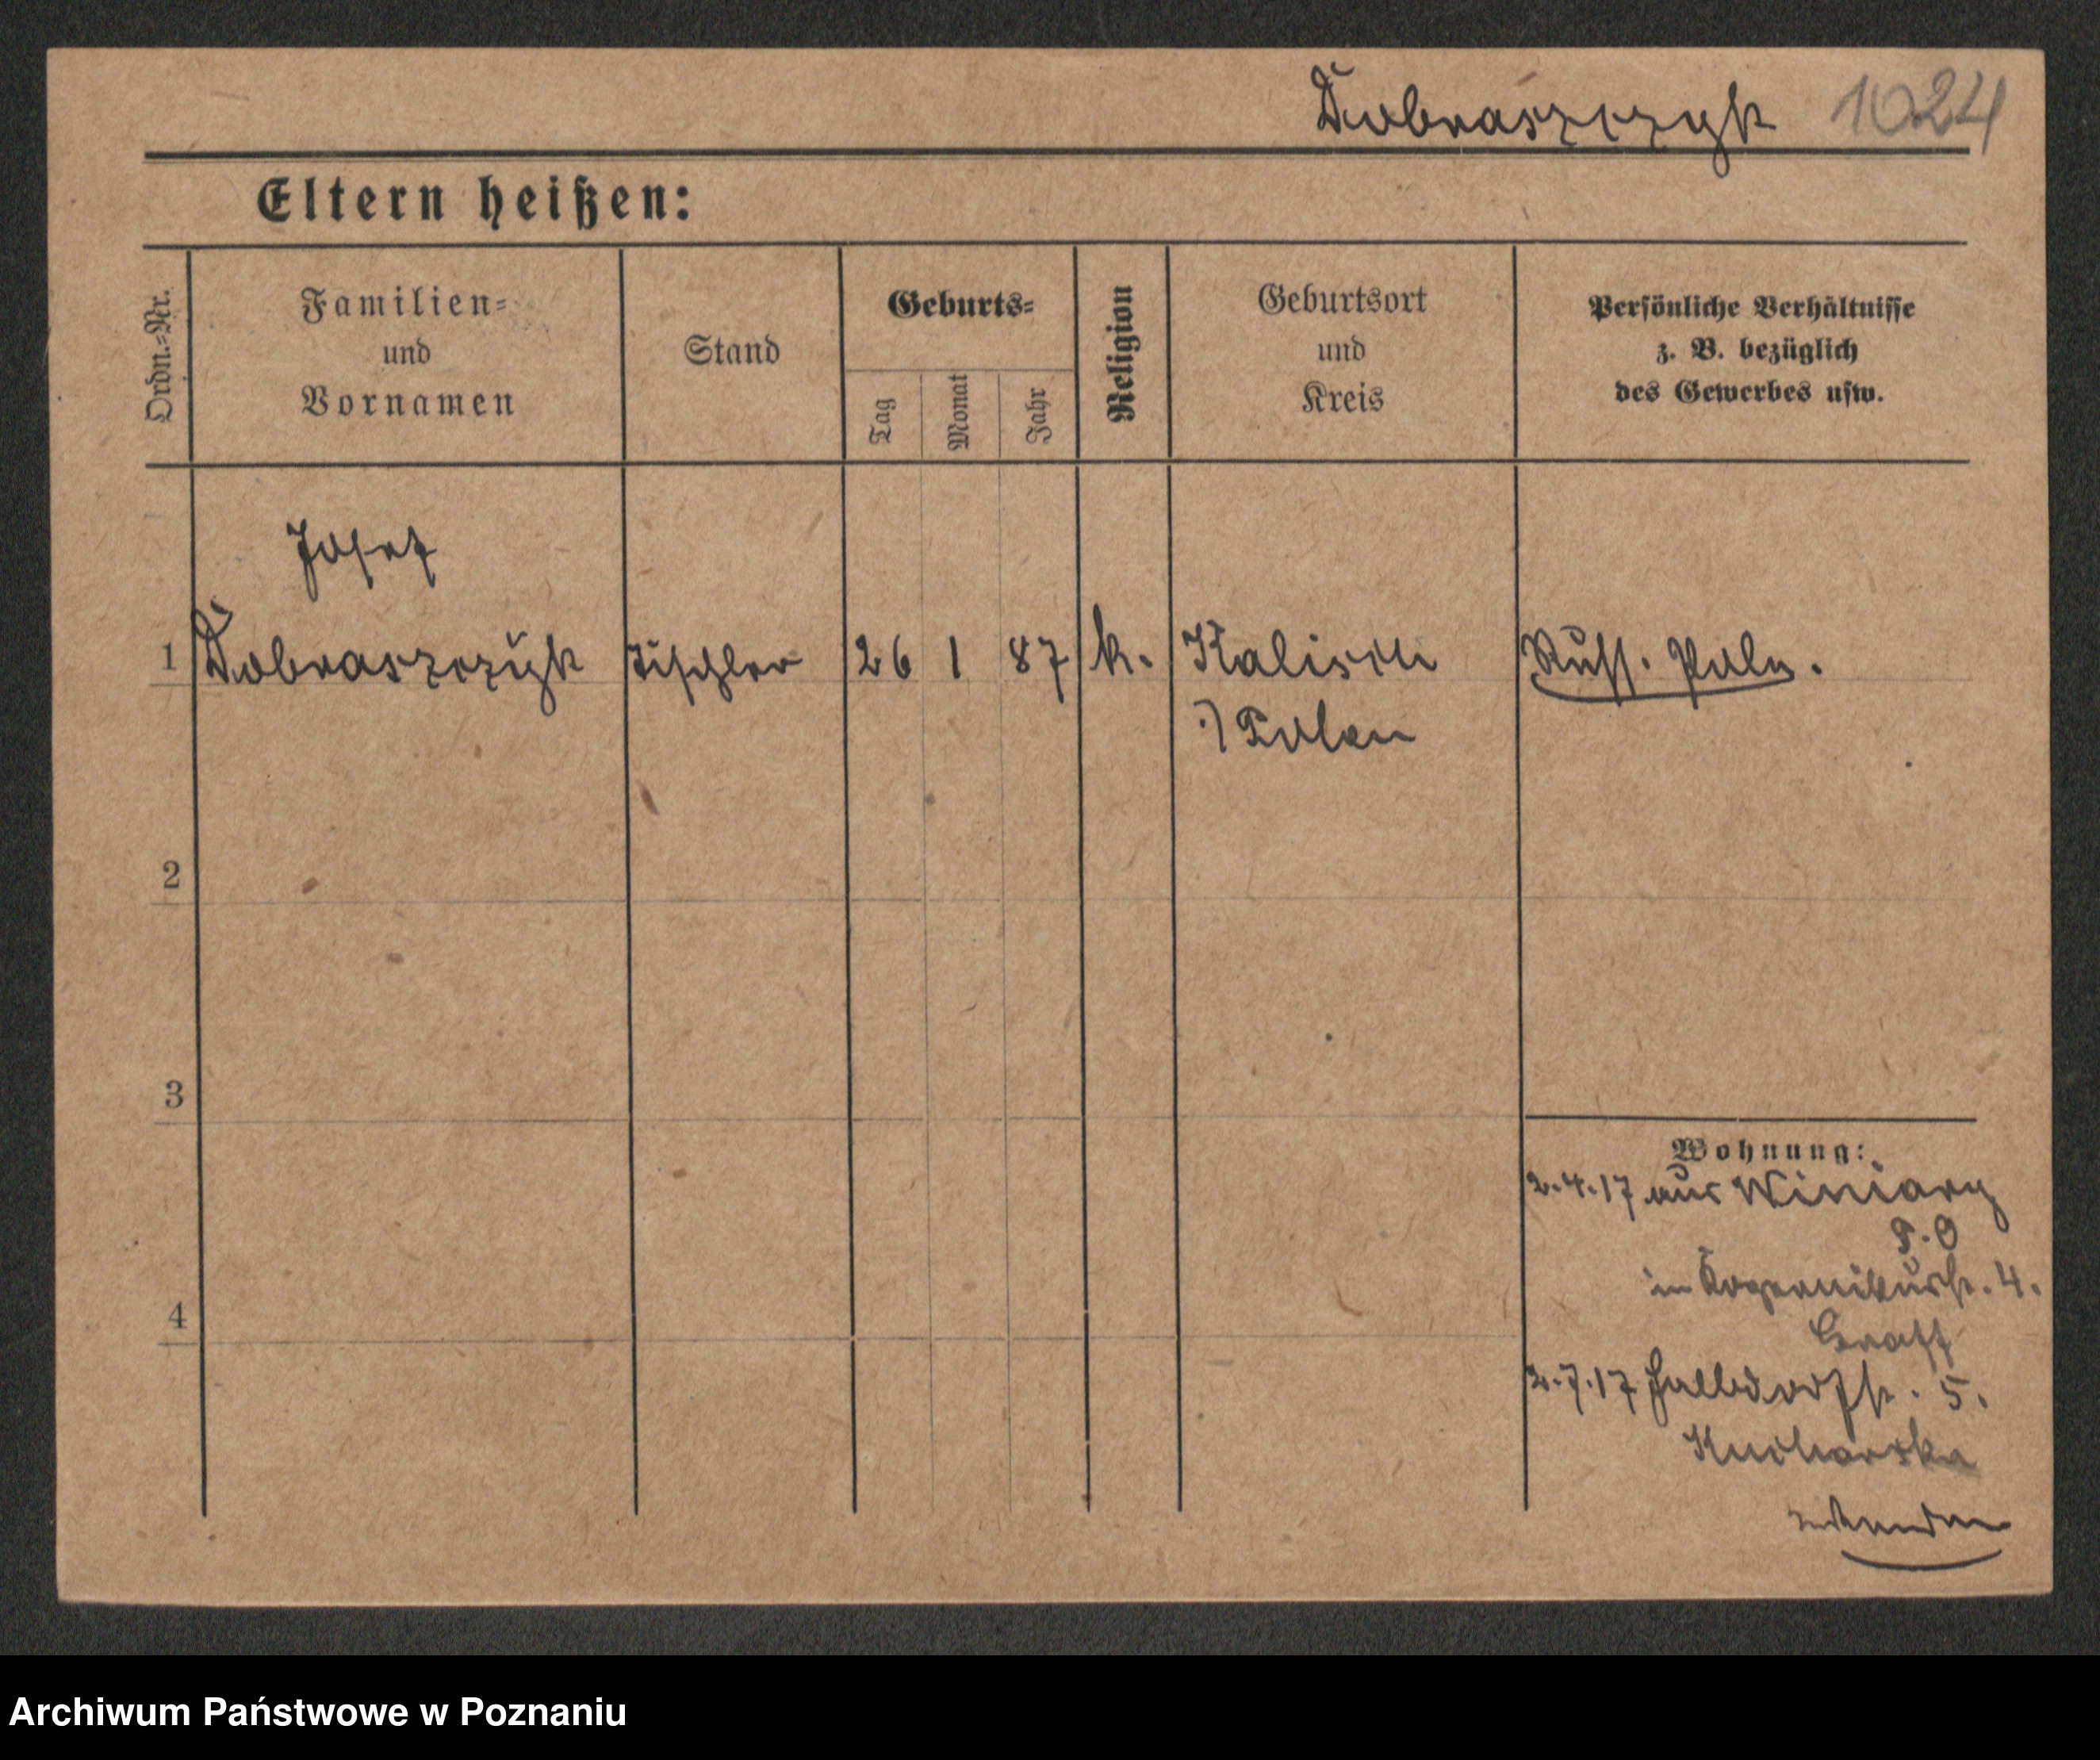 Dobraszczyk 1024
Eltern heißen:
Ordn.-Nr.
Familien-
und
Vornamen
Stand
Geburts-
Tag
Monat
Jahr
Religion
Geburtsort
und
Kreis
Persönliche Verhältnisse
z. B. bezüglich
des Gewerbes usw.
Josef
1 Dobraszczyk Tischler 26 1 87 k. Kalisch Russ. Pole.
Polen
2
3
4
Wohnung:
2.4.17 aus Winiary
P.O
in Kopernikusstr. 4.
2.7.17 Halbdorfstr. 5.
Kucharska
wenden
Archiwum Państwowe w Poznaniu